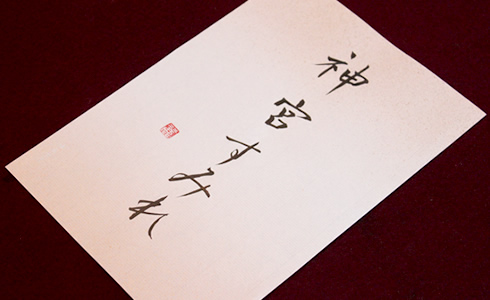 神宮すみれ